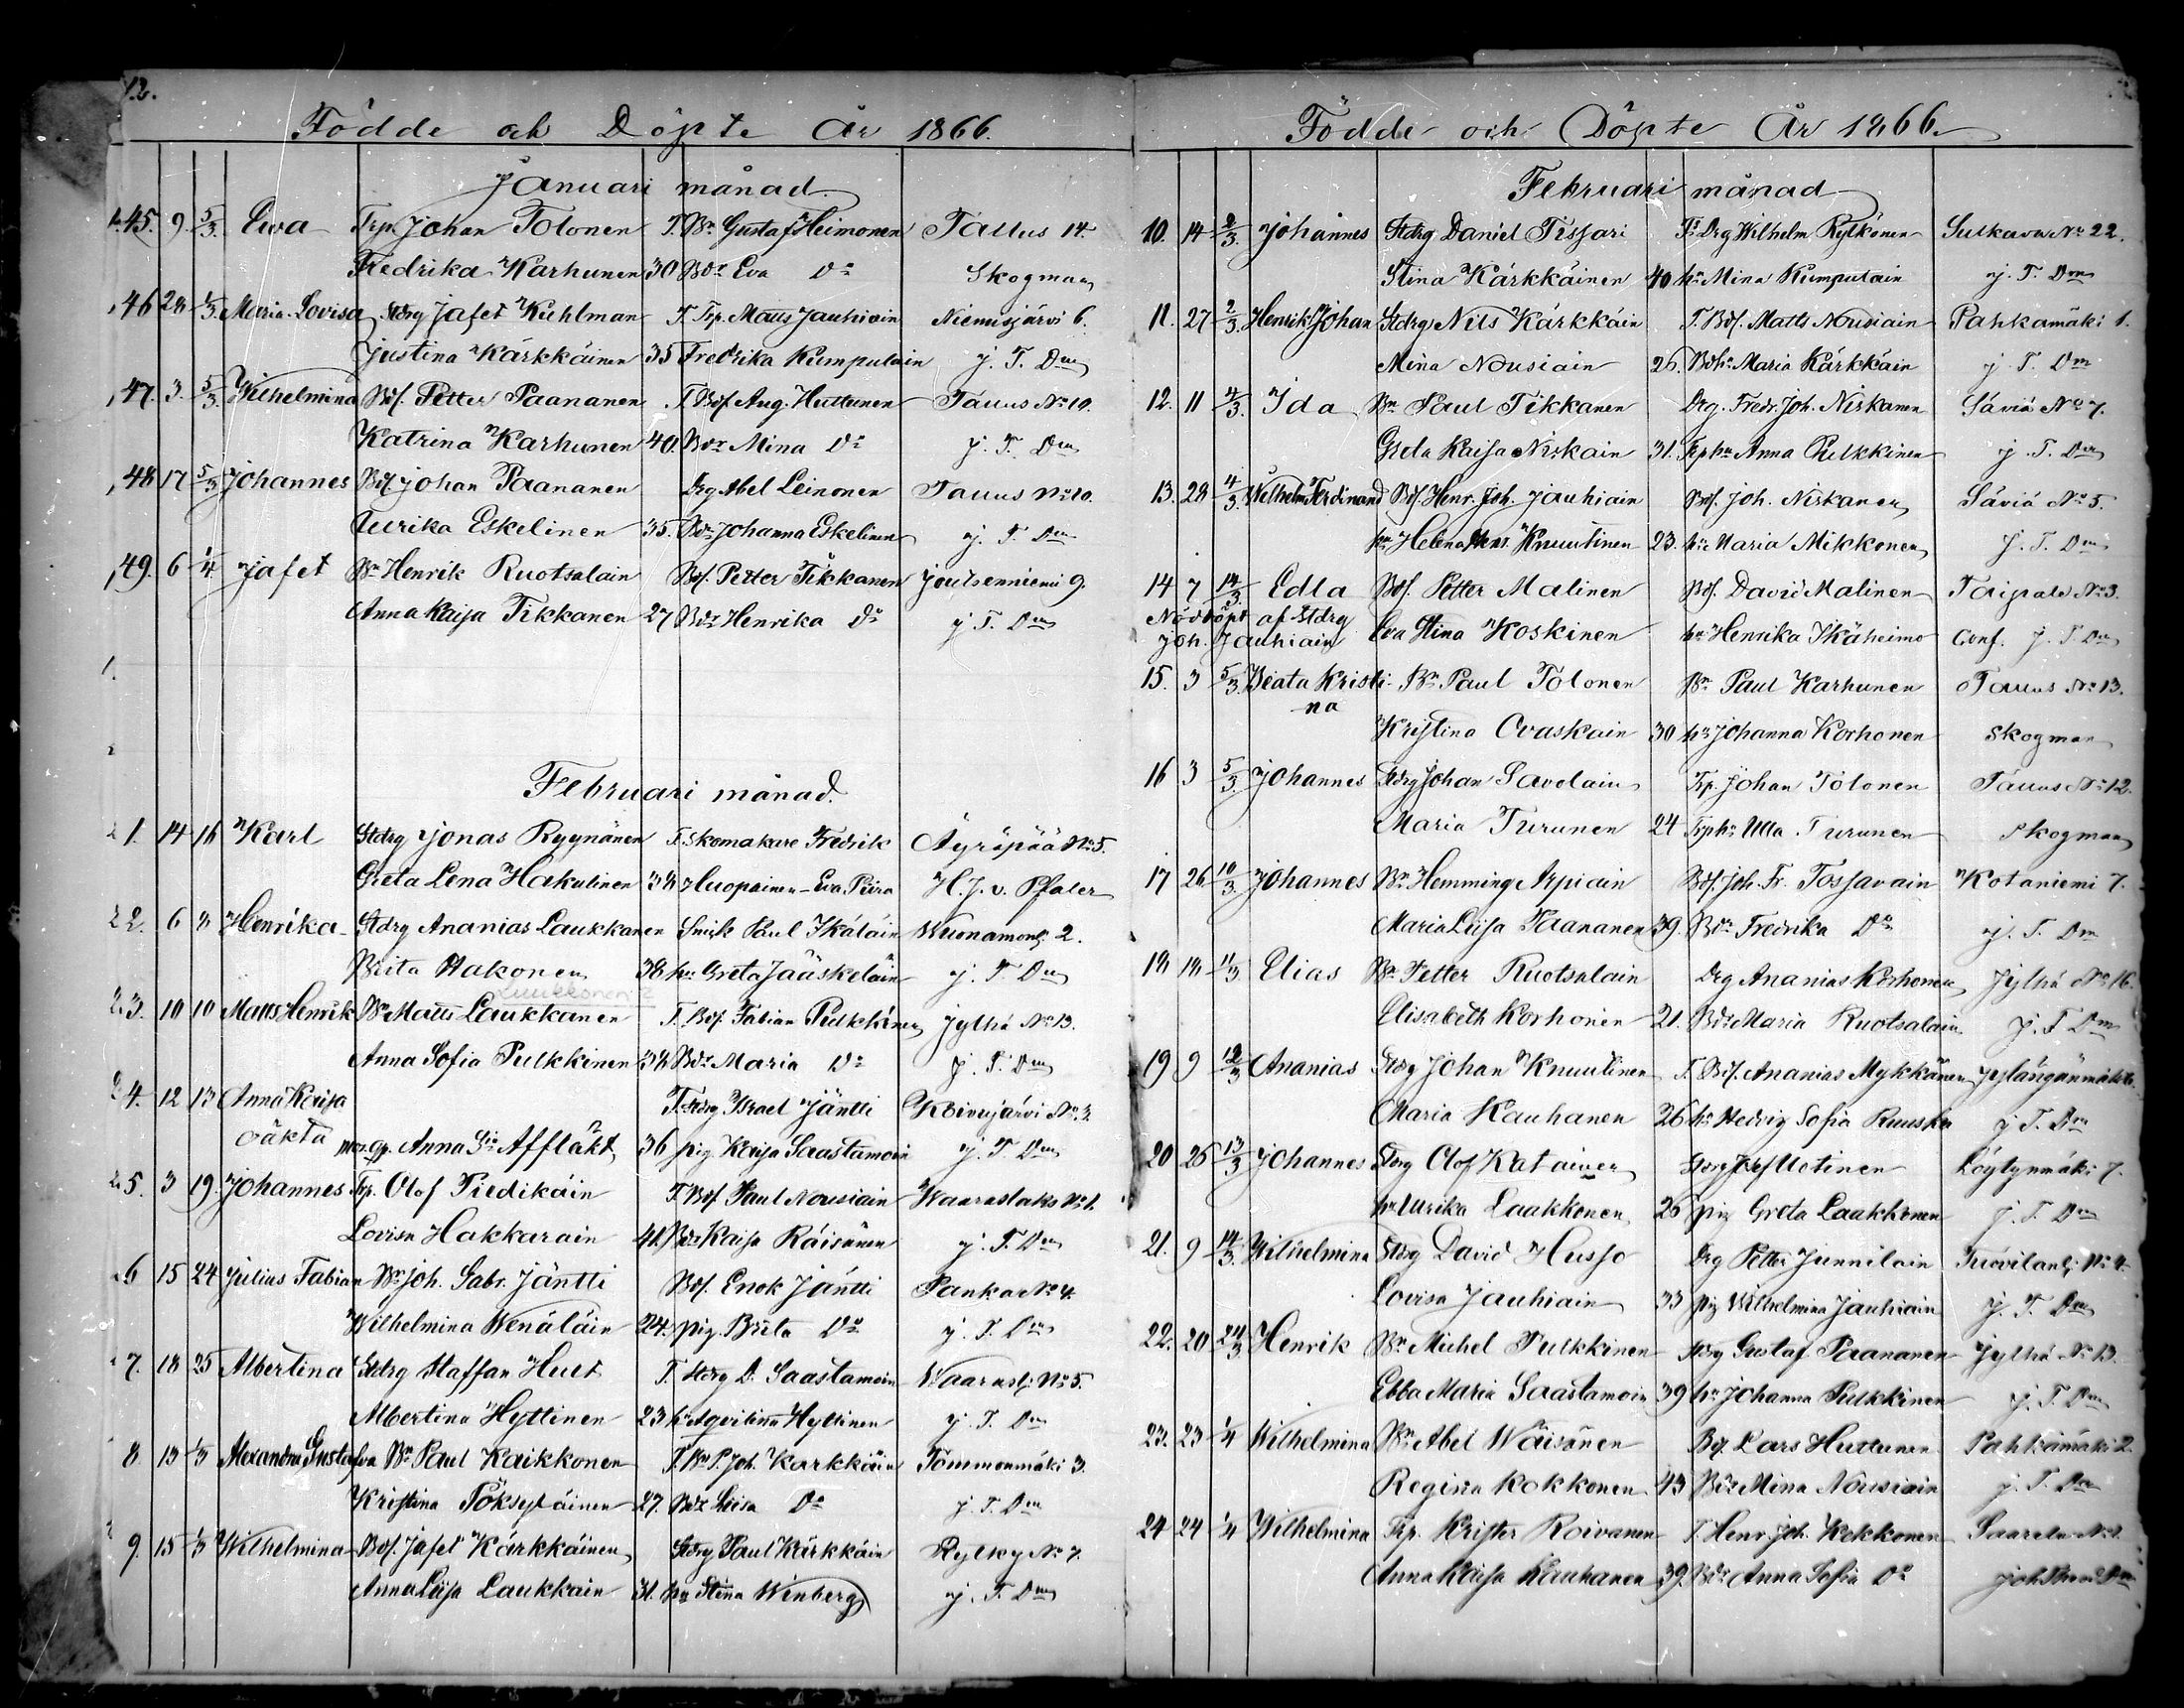 12.
Födde och Döpte År 1866.
Januari månad.
45. 9. 5/3. Ewa Trp. Johan Tolonen T. Bn Gustaf Heimonen Tallus 14.
Fredrika Karhunen 30 Bdr Eva Do Skogman
46 28 1/3. Maria Lovisa Stdrg Jafet Kuhlman T. Trp. Matts Jauhiain Niemisjärvi 6.
Justina Kärkkäinen 35 Fredrika Kumpulain j. T. Dm
47. 3. 5/3. Wilhelmina Bdf. Petter Paananen T Bdf. Aug. Huttunen Tallus No 10.
Katrina Karhunen 40. Bdr Mina Do j. T. Dm
48 17 5/3 Johannes Bdf Johan Paananen Drg Abel Leinonen Tallus No 10.
Ulrika Eskelinen 35. Bdr Johanna Eskelinen j. T. Dm
49. 6 1/4. Jafet Bn Henrik Ruotsalain Bdf. Petter Tikkanen Joutsenniemi 9.
Anna Kaisa Tikkanen 27 Bdr Henrika Do j T. Dm
Februari månad.
1. 14 16 Karl Stdrg Jonas Ryynänen T. Skomakare Fredrik Äyräpää No 5.
Greta Lena Hakulinen 38 Huopainen - Eva Piira H. J. v. Pfaler
2. 6 8 Henrika Stdrg Ananias Laukkanen Smisk Paul Ikäläin Wuonamonlj. 2.
Brita Hakonen 38 hu Greta Jääskeläin j. T. Dm
Luukkonen
3. 10 10 Matts Henrik Bn Matts Laukkanen T. Bdf. Fabian Pulkkinen Jylhä No 13.
Anna Sofia Pulkkinen 38 Bdr Maria Do j. T. Dm
4. 12 13 Anna Kaisa T. Stdrg Israel Jäntti Koivujärvi No 3.
oäkta Anna Affläkt 36 pig Kaisa Saastamoin j. T. Dm
5. 3 19. Johannes Trp. Olof Piedikäin T. Bdf. Paul Nousiain Waaraslaks No 1.
Lovisa Hakkarain 41. Bdr Kaisa Räisänen j. T. Dm
6 15 24 Julius Fabian Bn Joh. Gabr. Jäntti Bdf. Enok Jäntti Panka No 4.
Wilhelmina Wenäläin 24. pig. Brita Do j. T. Dm
7. 18 25 Albertina Stdrg Staffan Hult T. Stdrg D. Saastamoin Waaraslj. No 5.
Albertina Hyttinen 23 hu Agvilina Hyttinen j. T. Dm
8. 13 1/3 Alexandra Gustafva Bn Paul Kaikkonen T. Bn P. Joh. Karkkäin Tommonmäki 3.
Kristina Pöksyläinen 27. Bdr Liisa Do j. T. Dm
9. 15 1/3 Wilhelmina Bdf. Jafet Kärkkäinen Stdrg Paul Kärkkäin Rylky No 7.
Anna Liisa Laukkain 31. hu Stina Winberg j. T. Dm
Födde och Döpte År 1866.
Februari månad
10. 14 2/3. Johannes Stdrg Daniel Tissari T. Drg Wilhelm Rytkönen Sulkava No 22.
Stina Kärkkäinen 40 hu Mina Kumpulain j. T. Dm
11. 27 2/3. Henrik Johan Stdrg Nils Kärkkäin T. Bdf. Matts Nousiain Pahkamäki 1.
Mina Nousiain 26. Bdhu Maria Kärkkäin j. T. Dm
12. 11 4/3. Ida Bn Paul Tikkanen Drg. Fredr. Joh. Niskanen Säviä No 7.
Greta Kaisa Niskain 31. Trphu Anna Pulkkinen j. T. Dm
13. 28 4/3. Wilhelm Ferdinand Bdf. Henr. Joh. Jauhiain Bdf. Joh. Niskanen Säviä No 5.
Helena Knuutinen 23. hu Maria Mikkonen j. T. Dm
14 7 14/3. Edla Bdf. Petter Malinen Bdf. David Malinen Taipale No 3.
Nöddöpt af Stdrg Eva Stina Koskinen hu Henrika Ikäheimo Conf. j. T. Dm
Joh. Jauhiain
15. 3 5/3 Beata Kristi- Bn Paul Tolonen Bn Paul Karhunen Tallus No 13.
na
Kristina Ovaskain 30 hu Johanna Korhonen Skogman
16 3 5/3. Johannes Stdrg Johan Savolain Trp. Johan Tolonen Tallus No 12.
Maria Turunen 24 Trphu Ulla Turunen Skogman
17 26 10/3. Johannes Bn Hemming Arpiain Bdf. Joh. Fr. Tossavain Kotaniemi 7.
Maria Liisa Paananen 39. Bdr Fredrika Do j. T. Dm
18 18 11/3 Elias Bn Petter Ruotsalain Drg Ananias Korhonen Jylhä No 16.
Elisabeth Korhonen 21. Bdr Maria Ruotsalain j. T. Dm
19 9 12/3 Ananias Stdrg Johan Knuutinen T. Bdf. Ananias Mykkänen
Maria Kauhanen 26 hu Hedvig Sofia Ruuska j. T. Dm
20 25 13/3 Johannes Stdrg Olof Katainen Stdrg Josef Uotinen Löytynmäki 7.
hu Ulrika Laakkonen 26 pig Greta Laakkonen j. T. Dm
21. 9 14/3. Wilhelmina Stdrg David Husso Drg Petter Junnilain Tuovilanlj. No 4.
Lovisa Jauhiain 33 pig Wilhelmina Jauhiain j. T. Dm
22. 20 24/3 Henrik Bn Michel Pulkkinen Stdrg Gustaf Paananen Jylhä No 13.
Ebba Maria Saastamoin 39 hu Johanna Pulkkinen j. T. Dm
23. 23 1/4 Wilhelmina Bn Abel Wäisänen Bdf. Lars Huttunen Pahkamäki 2.
Regina Kokkonen 43 Bdr Mina Nousiain j. T. Dm
24 24 1/4 Wilhelmina Trp. Krister Roivanen T Henr. Joh. Kekkonen Saarela No 1.
Anna Kaisa Kauhanen 39. Bdr Anna Sofia Do